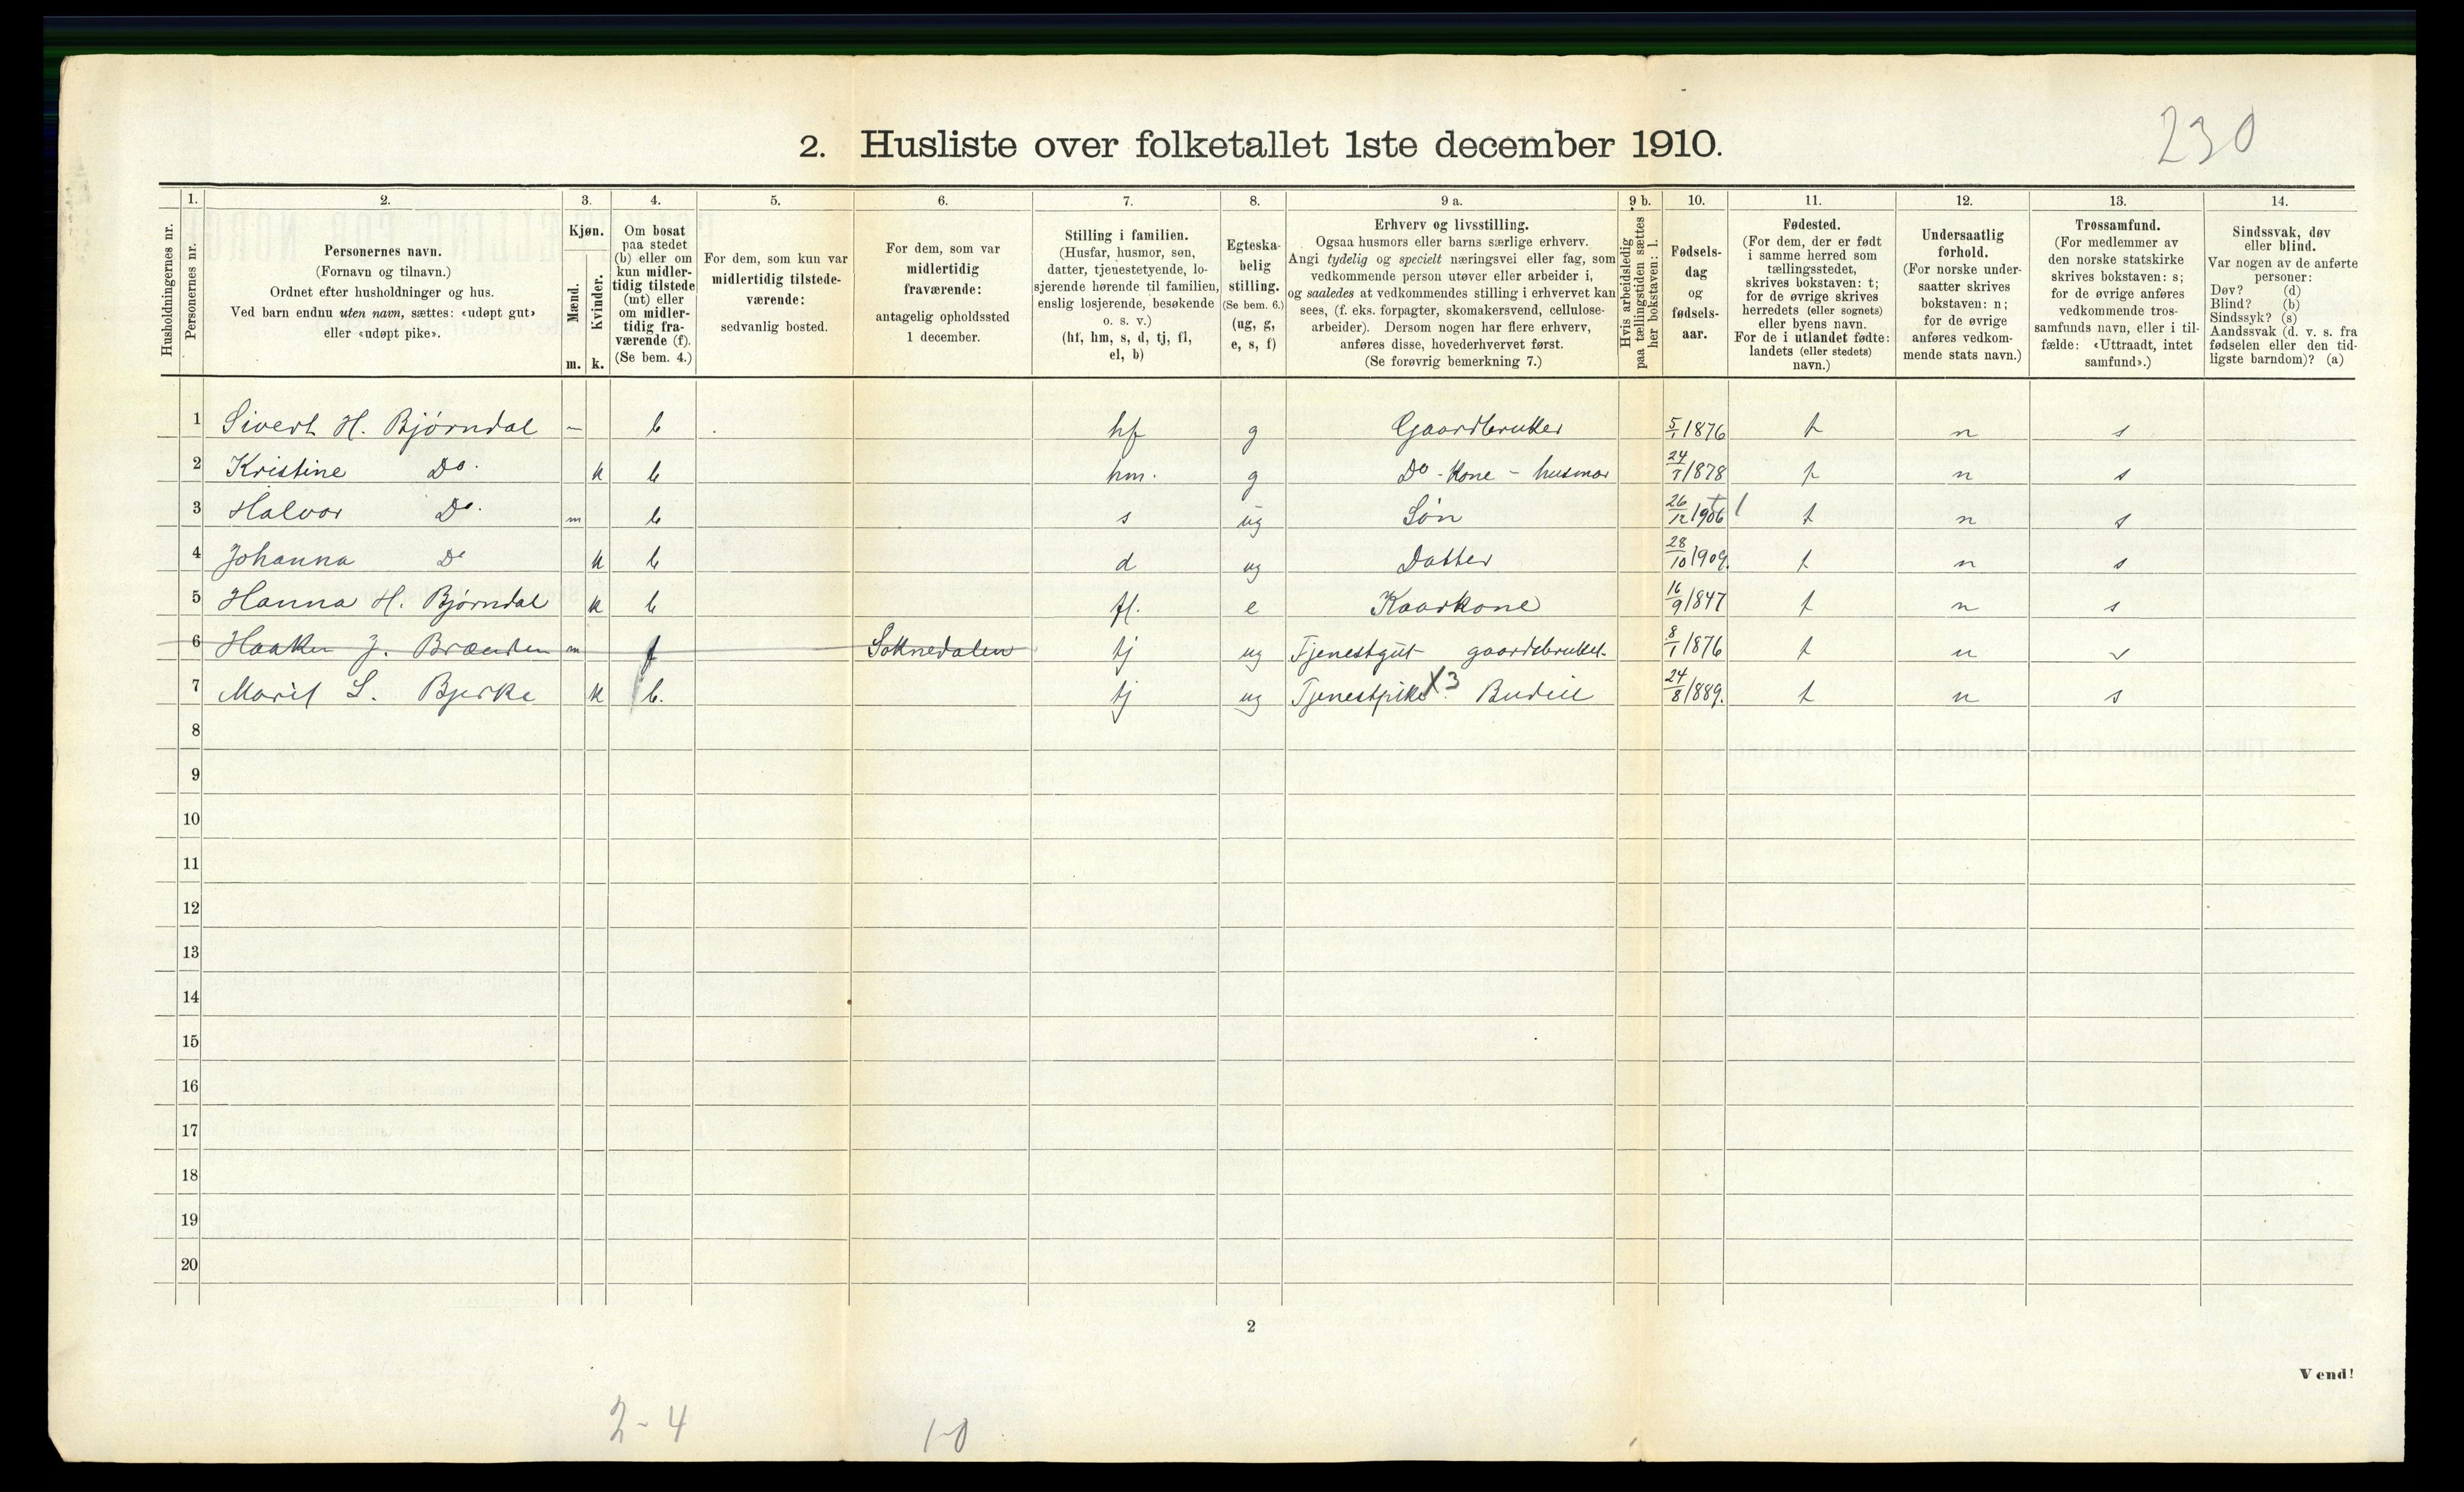 230
2. Husliste over folketallet 1ste december 1910.
Husholdningernes nr.
1.
Personernes nr.
2.
Personernes navn.
(Fornavn og tilnavn.)
Ordnet efter husholdninger og hus.
Ved barn endnu uten navn, sættes: «udøpt gut»
eller «udøpt pike».
3.
Kjøn.
Mænd.
m.
Kvinder.
k.
4.
Om bosat
paa stedet
(b) eller om
kun midler-
tidig tilstede
(mt) eller
om midler-
tidig fra-
værende (f).
(Se bem. 4.)
5.
For dem, som kun var
midlertidig tilstede-
værende:
sedvanlig bosted.
6.
For dem, som var
midlertidig
fraværende:
antagelig opholdssted
1 december.
7.
Stilling i familien.
(Husfar, husmor, søn,
datter, tjenestetyende, lo-
sjerende hørende til familien,
enslig losjerende, besøkende
o. s. v.)
(hf, hm, s, d, tj, fl,
el, b)
8.
Egteska-
belig
stilling.
(Se bem. 6.)
(ug, g,
e, s, f)
9 a.
Erhverv og livsstilling.
Ogsaa husmors eller barns særlige erhverv.
Angi tydelig og specielt næringsvei eller fag, som
vedkommende person utøver eller arbeider i,
og saaledes at vedkommendes stilling i erhvervet kan
sees, (f. eks. forpagter, skomakersvend, cellulose-
arbeider). Dersom nogen har flere erhverv,
anføres disse, hovederhvervet først.
(Se forøvrig bemerkning 7.)
9 b.
Hvis arbeidsledig
paa tællingstiden sættes
her bokstaven: l.
10.
Fødsels-
dag
og
fødsels-
aar.
11.
Fødested.
(For dem, der er født
i samme herred som
tællingsstedet,
skrives bokstaven: t;
for de øvrige skrives
herredets (eller sognets)
eller byens navn.
For de i utlandet fødte:
landets (eller stedets)
navn.)
12.
Undersaatlig
forhold.
(For norske under-
saatter skrives
bokstaven: n;
for de øvrige
anføres vedkom-
mende stats navn.)
13.
Trossamfund.
(For medlemmer av
den norske statskirke
skrives bokstaven: s;
for de øvrige anføres
vedkommende tros-
samfunds navn, eller i til-
fælde: «Uttraadt, intet
samfund».)
14.
Sindssvak, døv
eller blind.
Var nogen av de anførte
personer:
Døv? (d)
Blind? (b)
Sindssyk? (s)
Aandssvak (d. v. s. fra
fødselen eller den tid-
ligste barndom)? (a)
1 Sivert H. Bjørndal – b hf g Gaardbruker 5/1 1876 t n s
2 Kristine Do. k b hm. g Do - Kone - husmor 24/7 1878 t n s
3 Halvor Do. m b s ug Søn 26/12 1906 t n s
4 Johanna Do k b d ug Datter 28/10 1909. t n s
5 Hanna H. Bjørndal k b fl. e Kaarkone 16/9 1847 t n s
6 Haaken J. Brænden m f Soknedalen tj ug Tjenestgut gaardsbruket. 8/1 1876 t n s
7 Marit S. Bjerke k b. tj ug Tjenestpike X3 Budeie 24/8 1889. t n s
8
9
10
11
12
13
14
15
16
17
18
19
20
2
Vend!
2-4
1-0